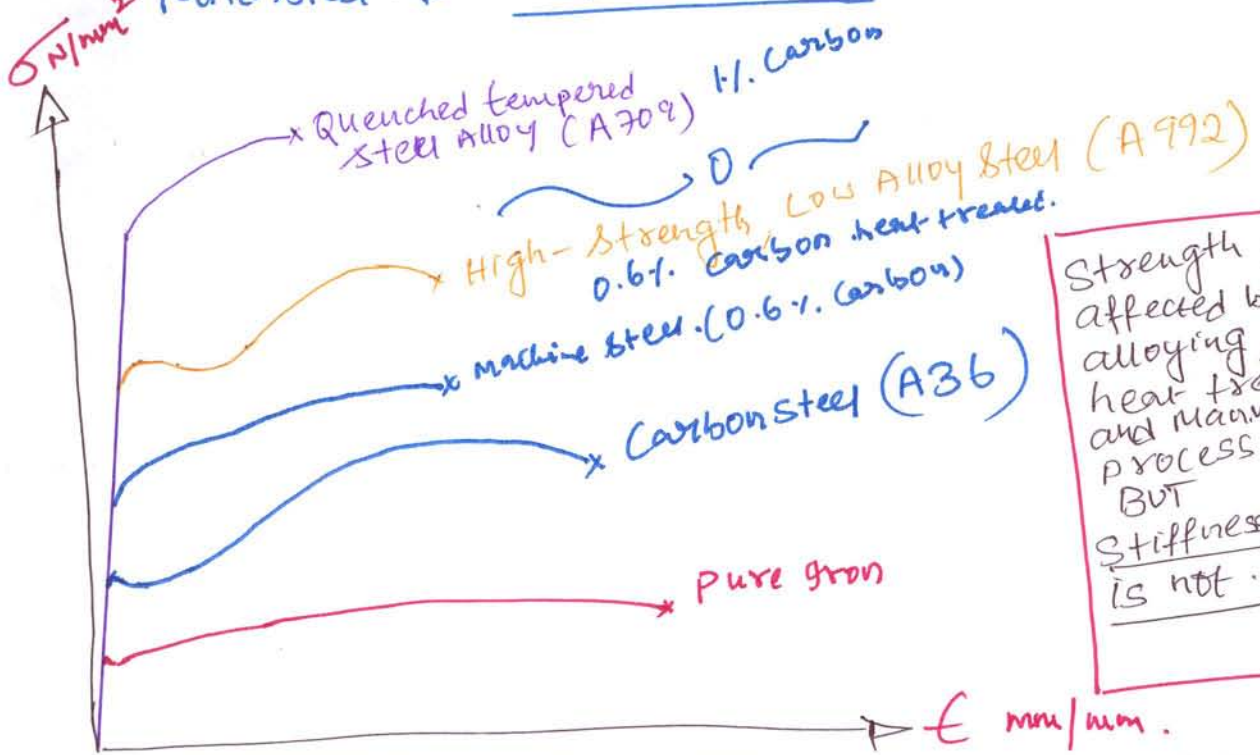 σ N/mm²
Quenched tempered
Steel Alloy (A709)
1%. Carbon
High-Strength, Low Alloy Steel (A992)
0.6%. Carbon heat-treated.
Machine Steel. (0.6%. Carbon)
Carbon Steel (A36)
Pure Iron
ϵ mm/mm.
Strength
affected
alloying
heat
and
process
BUT
Stiffness
is not.